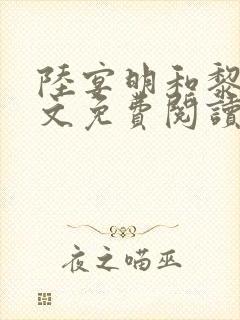 陸宴明和黎
文免費閱讀
夜之喵巫